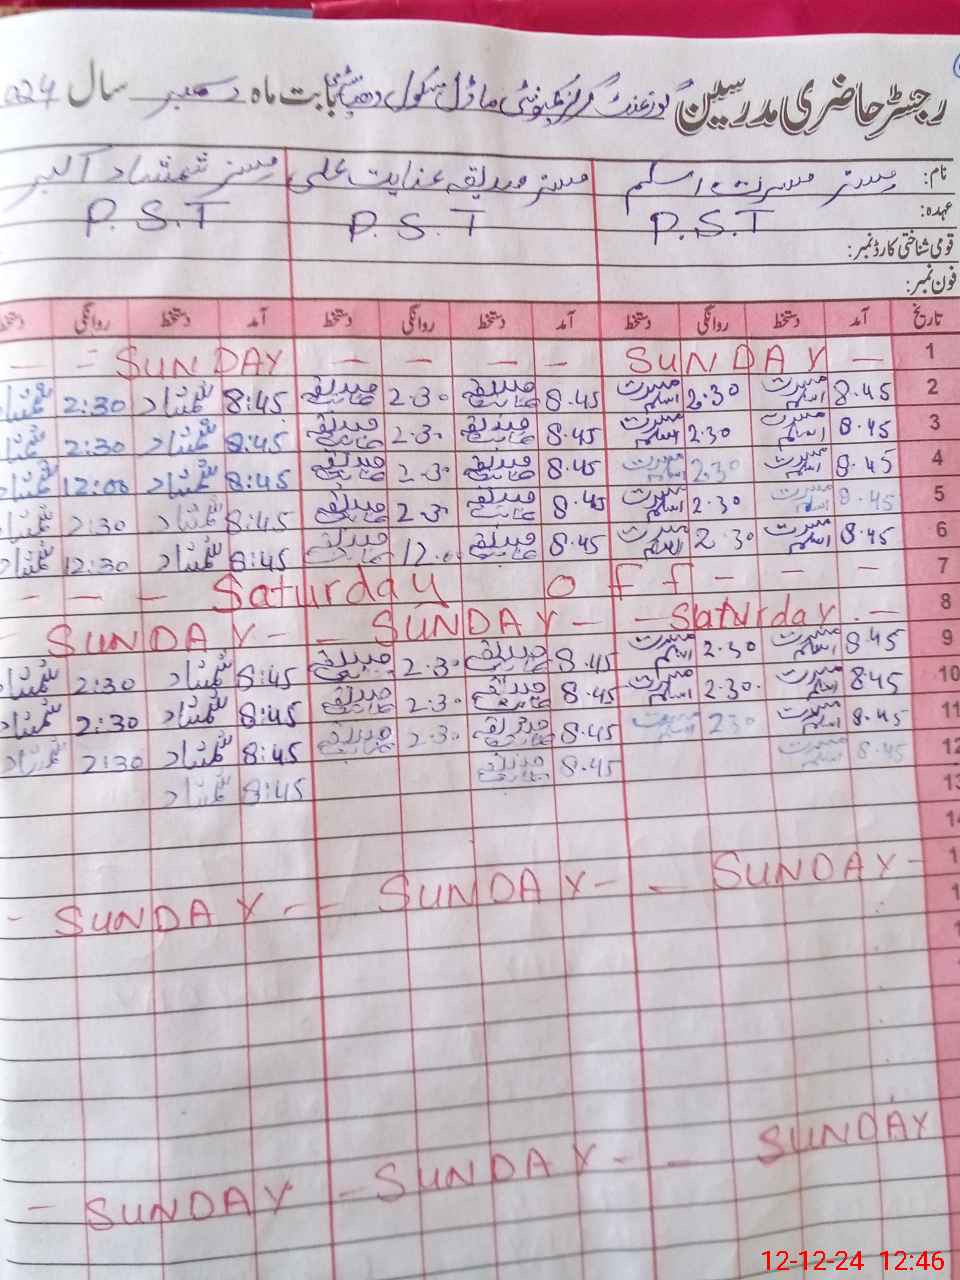 رجسٹر حاضری مدرسین گورنمنٹ گرلز کمیونٹی ماڈل سکول بابت ماہ دسمبر سال 2024
نام: مسز مسرت اسلم مسز صدیقہ عنایت علی مسز شمشاد اکبر
عہدہ: P.S.T P.S.T P.S.T
قومی شناختی کارڈ نمبر:
فون نمبر:
تاریخ آمد دستخط روانگی دستخط آمد دستخط روانگی دستخط آمد دستخط روانگی دستخط
1 — SUNDAY — — — — SUNDAY = —
2 8.45 مسرت اسلم 2.30 مسرت اسلم 8.45 صدیقہ عنایت 2.30 صدیقہ عنایت 8:45 شمشاد 2:30 شمشاد
3 8.45 مسرت اسلم 2.30 مسرت اسلم 8.45 صدیقہ عنایت 2.30 صدیقہ عنایت 8:45 شمشاد 2:30 شمشاد
4 8.45 مسرت اسلم 2.30 مسرت اسلم 8.45 صدیقہ عنایت 2.30 صدیقہ عنایت 8:45 شمشاد 12:00 شمشاد
5 8.45 مسرت اسلم 2.30 مسرت اسلم 8.45 صدیقہ عنایت 2.30 صدیقہ عنایت 8:45 شمشاد 2:30 شمشاد
6 8.45 مسرت اسلم 2.30 مسرت اسلم 8.45 صدیقہ عنایت صدیقہ عنایت 8:45 شمشاد 12:30 شمشاد
7 — — — Saturday off - - -
8 — SUNDAY - - SUNDAY - - Saturday. —
9 8.45 مسرت اسلم 2.30 مسرت اسلم 8.45 صدیقہ عنایت 2.30 صدیقہ عنایت 8:45 شمشاد 2:30 شمشاد
10 8.45 مسرت اسلم 2.30 مسرت اسلم 8.45 صدیقہ عنایت 2.30 صدیقہ عنایت 8:45 شمشاد 2:30 شمشاد
11 8.45 مسرت اسلم 230 مسرت اسلم 8.45 صدیقہ عنایت 2.30 صدیقہ عنایت 8:45 شمشاد 2:30 شمشاد
12 8.45 مسرت اسلم 8.45 صدیقہ عنایت 8:45 شمشاد
13
- SUNDAY - - SUNDAY - - SUNDAY -
- SUNDAY - SUNDAY - - SUNDAY
12-12-24 12:46